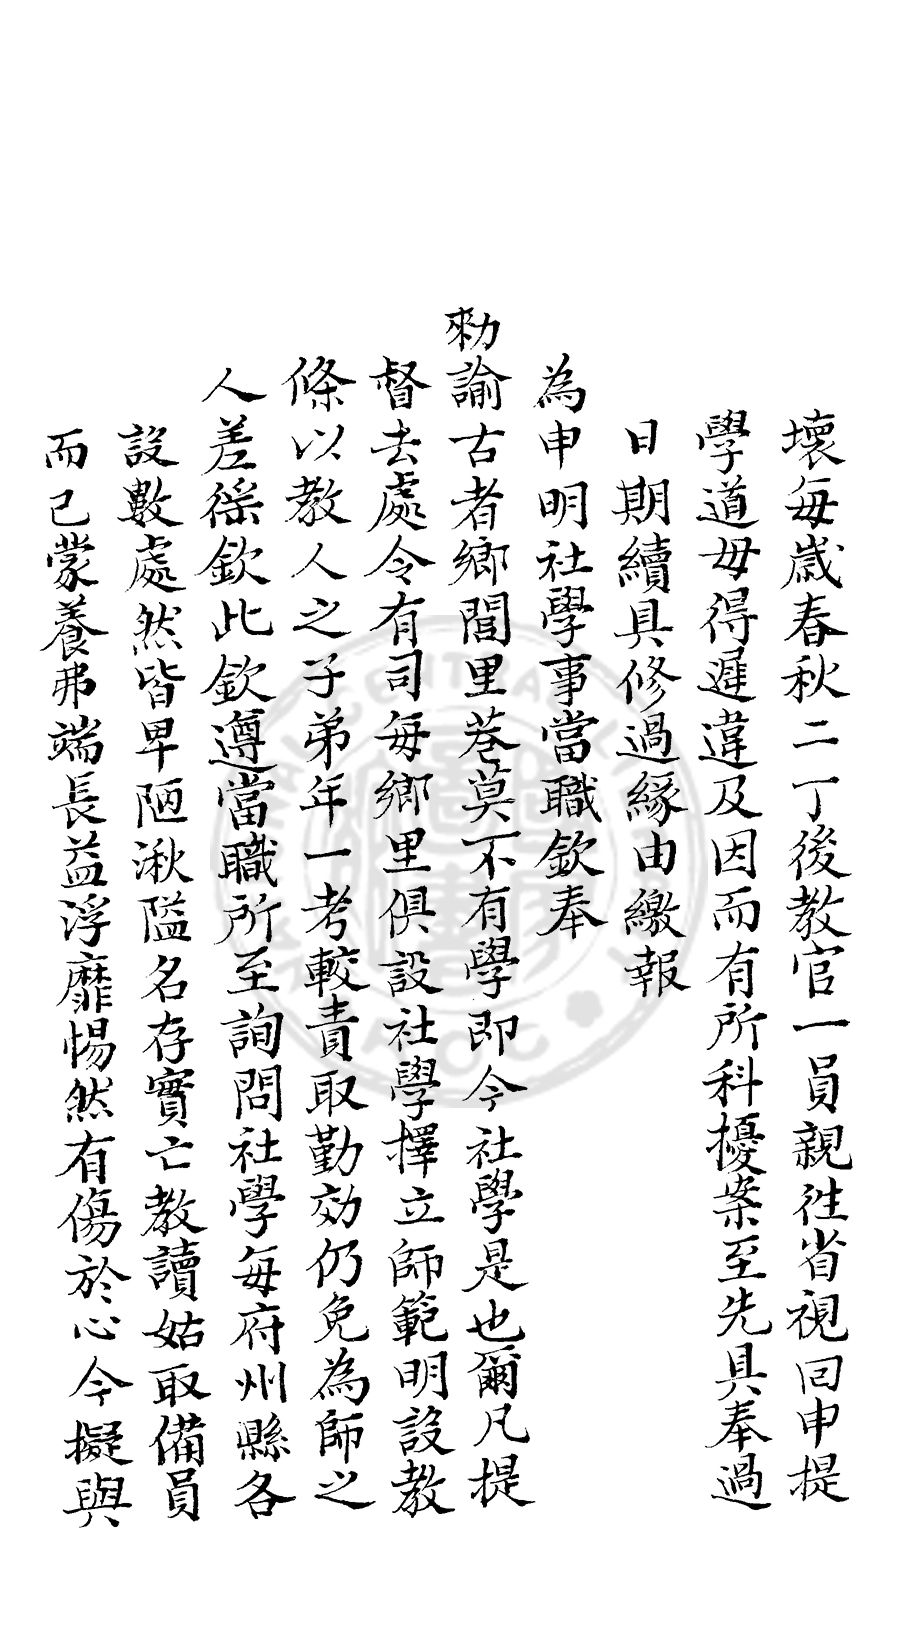 壞每歲春秋二丁後教官一員親徃省視回申提
學道毋得遲違及因而有所科擾案至先具奉過
日期續具修過緣由繳報
為申明社學事當職欽奉
勑諭古者鄉閭里巷莫不有學即今社學是也爾凡提
督去處令有司每鄉里俱設社學擇立師範明設教
條以教人之子弟年一考較責取勤効仍免為師之
人差徭欽此欽遵當職所至詢問社學每府州縣各
設數處然皆卑陋湫隘名存實亡教讀姑取備員
而已蒙養弗端長益浮靡惕然有傷於心今擬與